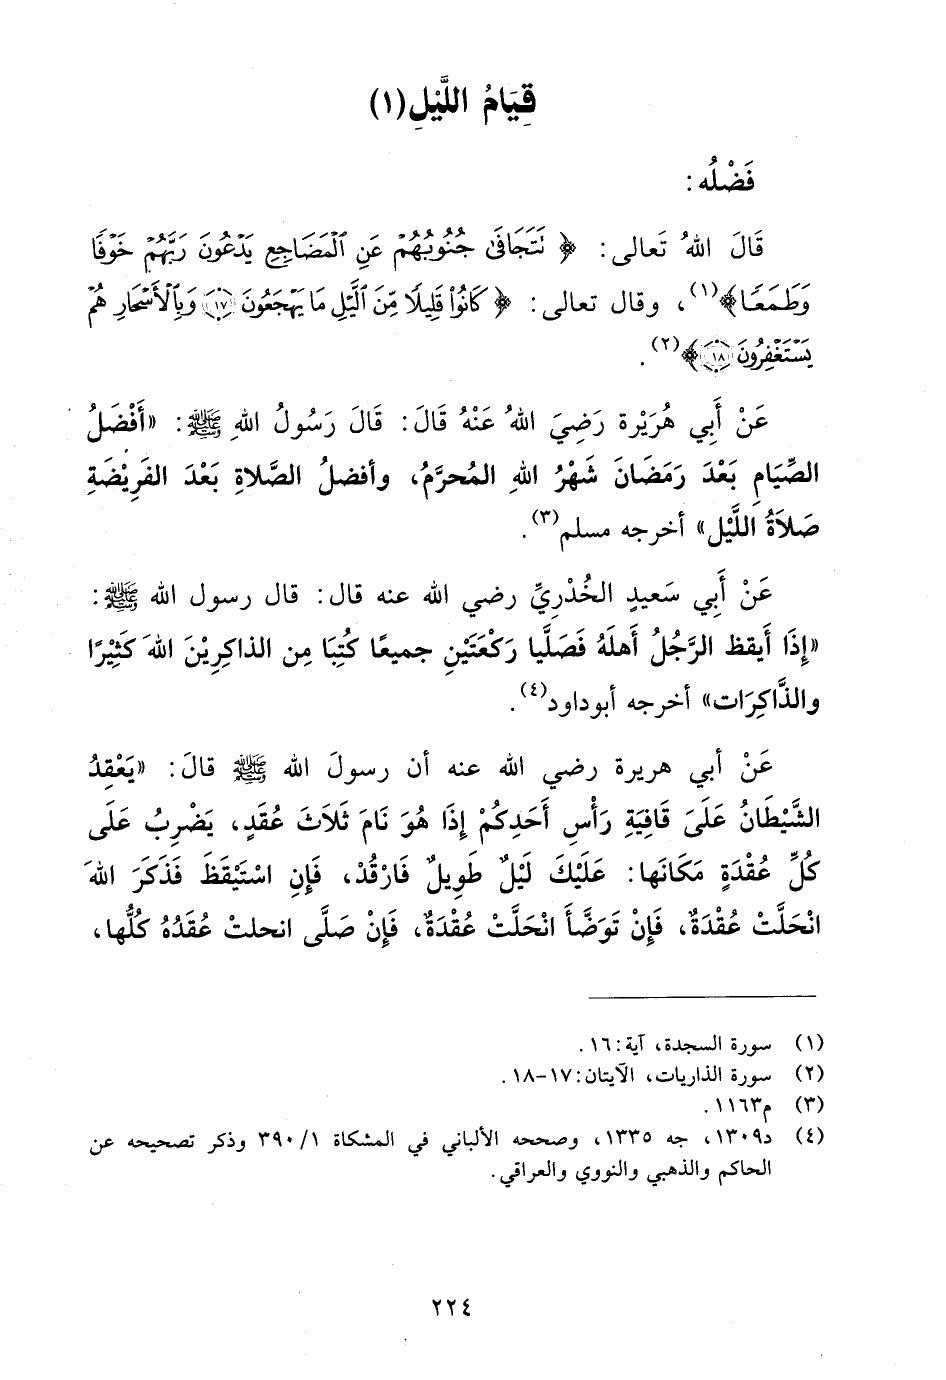 قِيَامُ اللَّيْلِ (١)
فَضْلُه :
قَالَ اللهُ تَعالى : ﴿ نَتَجَافَىٰ جُنُوبُهُمْ عَنِ ٱلْمَضَاجِعِ يَدْعُونَ رَبَّهُمْ خَوْفًا
وَطَمَعًا﴾(١)، وقال تعالى : ﴿ كَانُوا۟ قَلِيلًا مِّنَ ٱلَّيْلِ مَا يَهْجَعُونَ ١٧ وَبِٱلْأَسْحَارِ هُمْ
يَسْتَغْفِرُونَ ١٨﴾(٢).
عَنْ أَبِي هُرَيْرة رَضِيَ اللهُ عَنْهُ قَالَ : قَالَ رَسُولُ اللهِ ﷺ : «أَفْضَلُ
الصِّيَامِ بَعْدَ رَمَضَانَ شَهْرُ اللهِ المُحرَّمُ، وأفضلُ الصَّلاةِ بَعْدَ الفَرِيْضَةِ
صَلاَةُ اللَّيْلِ» أخرجه مسلم(٣).
عَنْ أَبِي سَعيدٍ الخُدْرِيِّ رضي الله عنه قال : قال رسول الله ﷺ :
«إِذَا أَيقظ الرَّجُلُ أهلَهُ فَصَلَّيا رَكْعَتَيْنِ جميعًا كُتِبَا مِن الذاكِرِيْنَ اللهَ كَثِيْرًا
والذَّاكِرَات» أخرجه أبوداود(٤).
عَنْ أبي هريرة رضي الله عنه أن رسولَ الله ﷺ قالَ : «يَعْقِدُ
الشَّيْطَانُ عَلَىَ قَافِيَةِ رَأْسِ أَحَدِكُمْ إِذَا هُوَ نَامَ ثَلاَثَ عُقَدٍ، يَضْرِبُ عَلَى
كُلِّ عُقْدَةٍ مَكَانَها : عَلَيْكَ لَيْلٌ طَوِيلٌ فَارْقُدْ، فَإِنِ اسْتَيْقَظَ فَذَكَرَ اللهَ
انْحَلَّتْ عُقْدَةٌ، فَإِنْ تَوَضَّأَ انْحَلَّتْ عُقْدَةٌ، فَإِنْ صَلَّى انحلتْ عُقَدُهُ كُلُّها،
(١) سورة السجدة، آية : ١٦.
(٢) سورة الذاريات، الآيتان : ١٧-١٨.
(٣) م١١٦٣.
(٤) د١٣٠٩، جه ١٣٣٥، وصححه الألباني في المشكاة ١/ ٣٩٠ وذكر تصحيحه عن
الحاكم والذهبي والنووي والعراقي.
٢٢٤